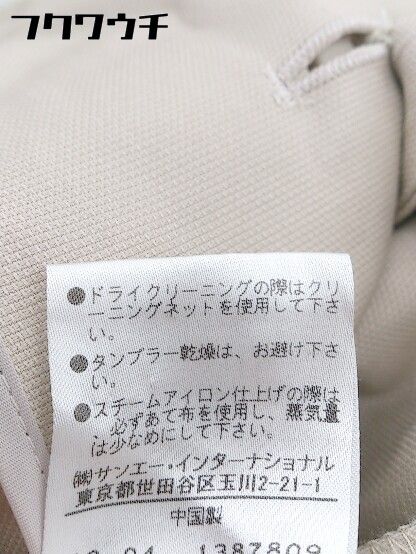 フクワウチ
●ドライクリーニングの際はクリ
ーニングネットを使用して下さ
い。
●タンブラー乾燥は、お避け下さ
い。
●スチームアイロン仕上げの際は
必ずあて布を使用し、蒸気量
は少なめにして下さい。
㈱サンエー・インターナショナル
東京都世田谷区玉川2-21-1
中国製
1387809